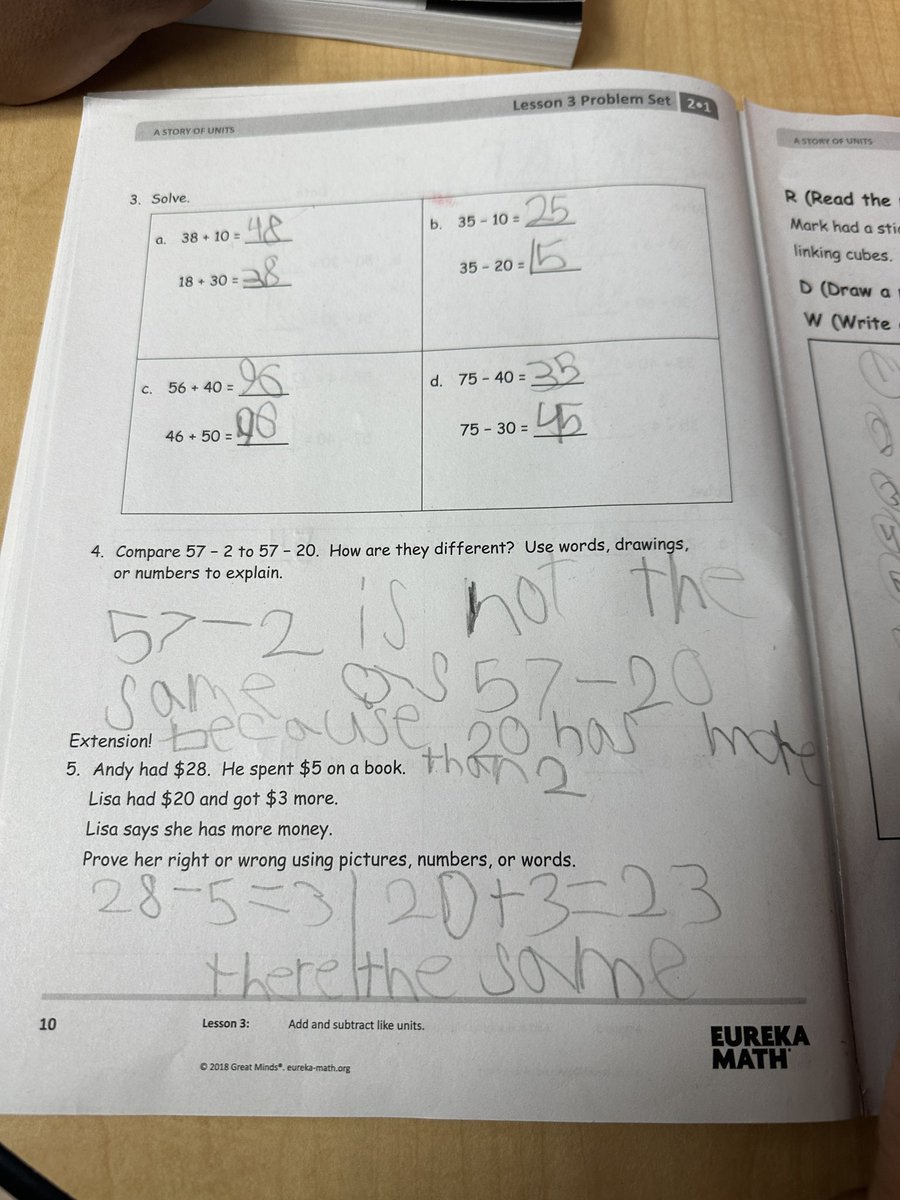 Lesson 3 Problem Set 2•1
A STORY OF UNITS
3. Solve.
a. 38 + 10 = 48
18 + 30 = 38
b. 35 - 10 = 25
35 - 20 = 15
c. 56 + 40 = 96
46 + 50 = 96
d. 75 - 40 = 35
75 - 30 = 45
4. Compare 57 - 2 to 57 - 20. How are they different? Use words, drawings,
or numbers to explain.
57-2 is not the
same as 57-20
because 20 has more
than 2
Extension!
5. Andy had $28. He spent $5 on a book.
Lisa had $20 and got $3 more.
Lisa says she has more money.
Prove her right or wrong using pictures, numbers, or words.
28-5=3 | 20+3=23
there the same
10
Lesson 3: Add and subtract like units.
© 2018 Great Minds®. eureka-math.org
EUREKA
MATH
A STORY OF UNITS
R (Read the
Mark had a
linking cubes.
D (Draw a
W (Write